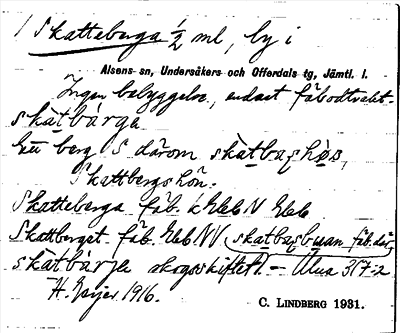 Skatteberga 1/2 ml, by i
Alsens sn, Undersåkers och Offerdals tg, Jämtl. l.
Ingen bebyggelse, endast fäbodtrakt.
skatbärga
Ett berg S därom
Skattbergshön.
Skatteberga fäb. Glob N Glob
Skattberget fäb. Glob NV (skatbasbuan fäb. där
skatbärja skogsskiftet). – Alva 317:2
H. Geijer 1916.
C. LINDBERG 1931.